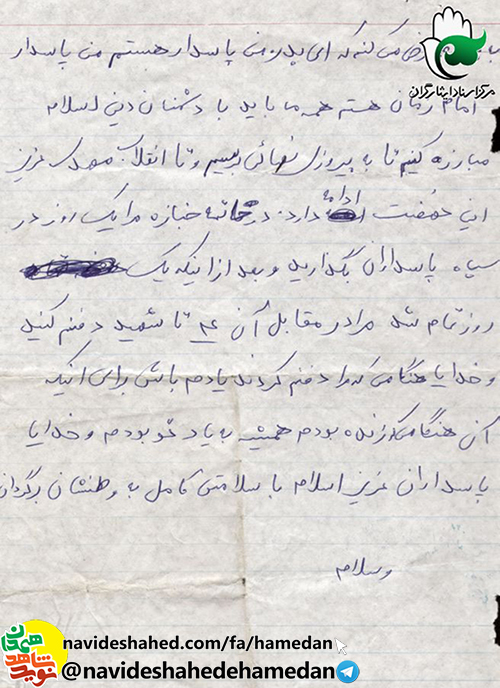 مرکز اسناد ایثارگران
می کند که ای پدر من پاسدار هستم من پاسدار
امام زمان هستم همه ما باید با دشمنان دین اسلام
مبارزه کنیم تا به پیروزی نهائی برسیم و تا انقلاب مهدی عزیز
این نهضت ادامه دارد. در خاتمه جنازه مرا یک روز در
سپاه پاسداران بگذارید و بعد از اینکه یک
روز تمام شد مرا در مقابل آن ۲۴ تا شهید دفنم کنید
و خدایا هنگامی که مرا دفنم کردند یادم باش برای اینکه
آن هنگامیکه زنده بودم همیشه به یاد تو بودم و خدایا
پاسداران عزیز اسلام با سلامتی کامل به وطنشان برگردان
وسلام
نوید شاهد همدان
navideshahed.com/fa/hamedan
@navideshahedehamedan